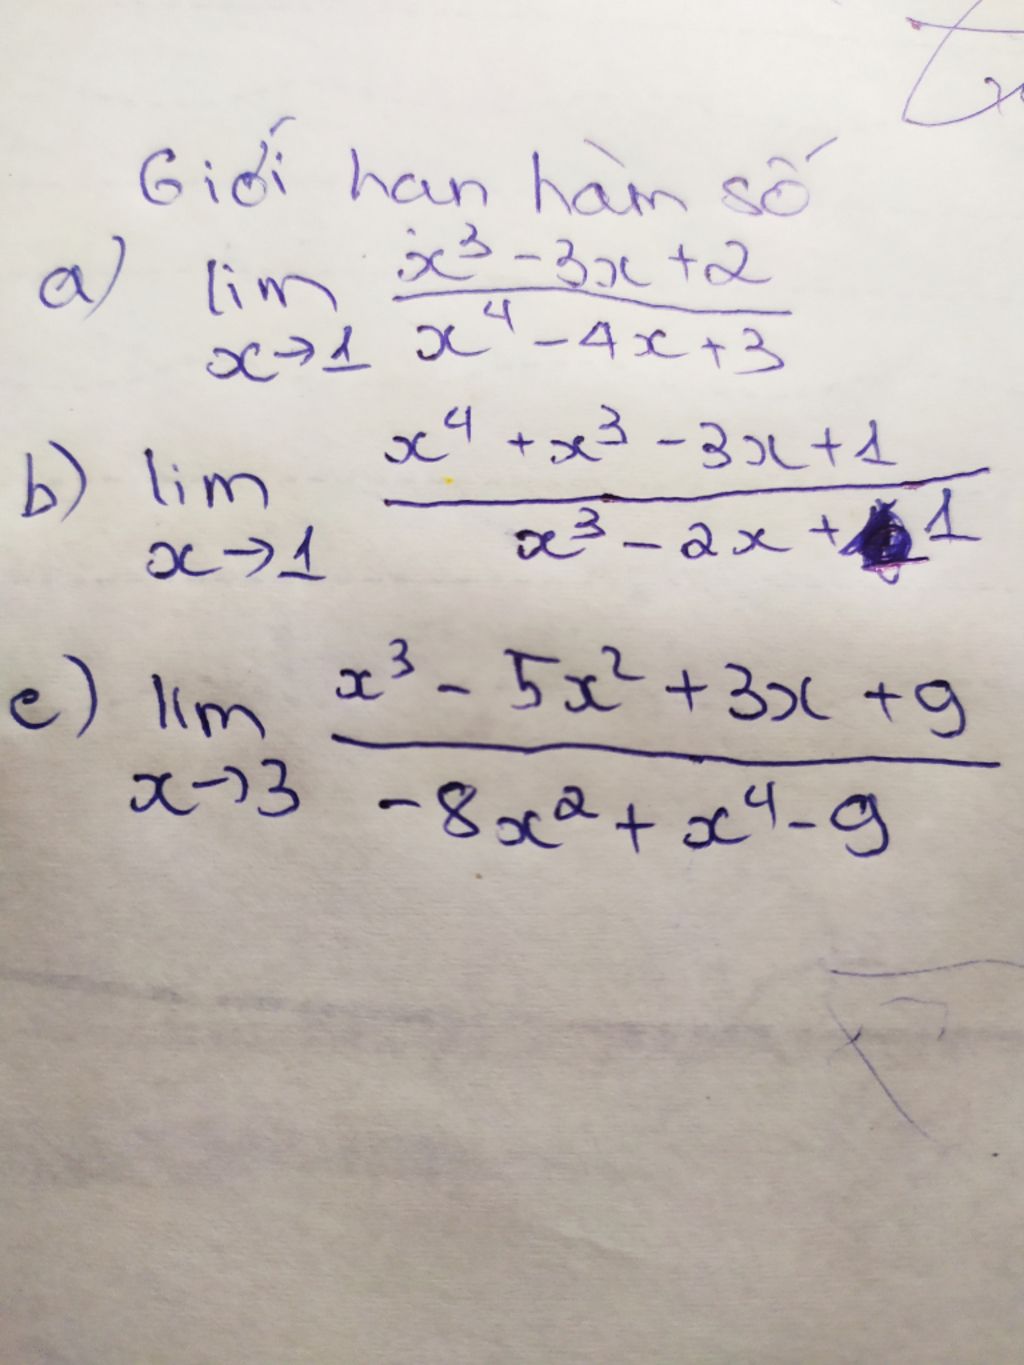 Giới han hàm số
a) lim x→1 (x³ - 3x + 2)/(x⁴ - 4x + 3)
b) lim x→1 (x⁴ + x³ - 3x + 1)/(x³ - 2x + 1)
c) lim x→3 (x³ - 5x² + 3x + 9)/(-8x² + x⁴ - 9)